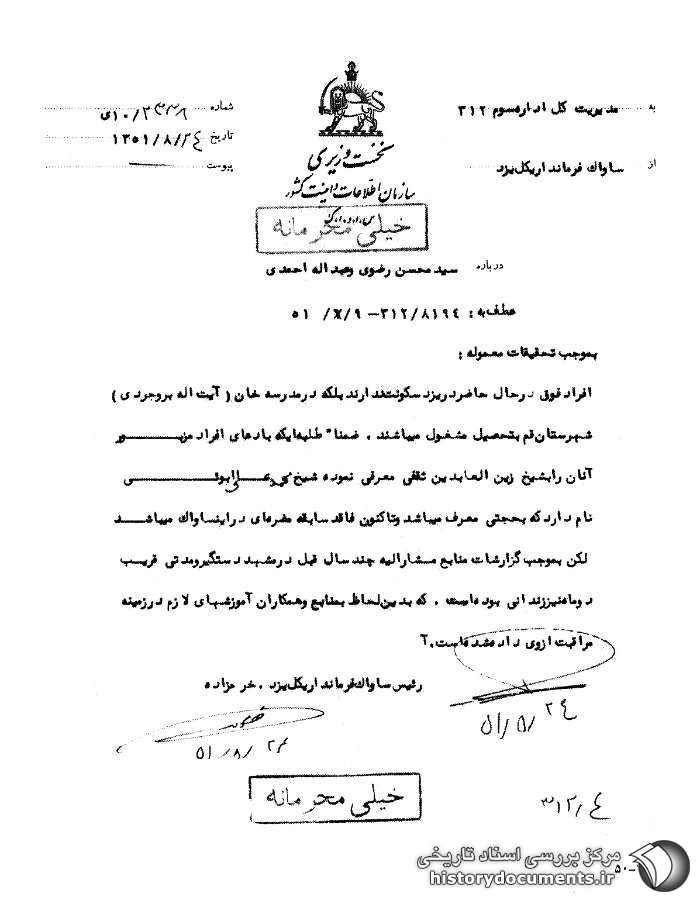 به مدیریت کل اداره سوم ۳۱۲
از ساواك فرماندا ریکل یزد
نخست وزیری
سازمان اطلاعات و امنیت کشور
س.ا.و.ا.ك
شماره ۱۰/۲۳۳۸ی
تاریخ ۱۳۵۱/۸/۲۴
پیوست
خیلی محرمانه
درباره سید محسن رضوی وعبداله احمدی
عطف به : ۳۱۲/۸۱۹٤ – ۵۱ /۸/۹
بموجب تحقیقات معموله :
افراد فوق در حال حاضر در یزد سکونت ندارند بلکه در مدرسه خان ( آیت اله بروجردی )
شهرستان قم بتحصیل مشغول میباشند . ضمنا" طلبه ایکه بادعای افراد مزبـــــــور
آنان رابشیخ زین العابدین ثقفی معرفی نموده شیخ محمد علی ابوئـــــــی
نام دارد که بحجتی معرف میباشد وتاکنون فاقد سابقه مضره ای در اینساواك میباشـــد
لکن بموجب گزارشات منابع مشارالیه چند سال قبل در مشهد دستگیر ومدتی قریب
دوماه نیز زندانی بوده است . که بدین لحاظ بمنابع وهمکاران آموزشهای لازم در زمینه
مراقبت ازوی داده شده است.آ
رئیس ساواك فرماندا ریکل یزد . خرمزاده
۵۱/۸/۲۴
۵۱/۸/۲٤
خیلی محرمانه
۳۱۲/٤
مرکز بررسی اسناد تاریخی
historydocuments.ir